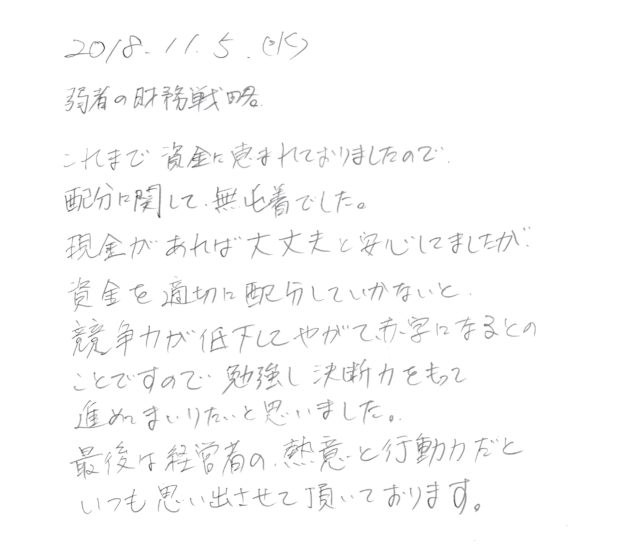 2018.11.5.(水)
弱者の財務戦略
これまで資金に恵まれておりましたので、
配分に関して、無頓着でした。
現金があれば大丈夫と安心してましたが、
資金を適切に配分していかないと、
競争力が低下してやがて、赤字になるとの
ことですので勉強し決断力をもって
進めてまいりたいと思いました。
最後は経営者の、熱意と行動力だと
いつも思い出させて頂いております。